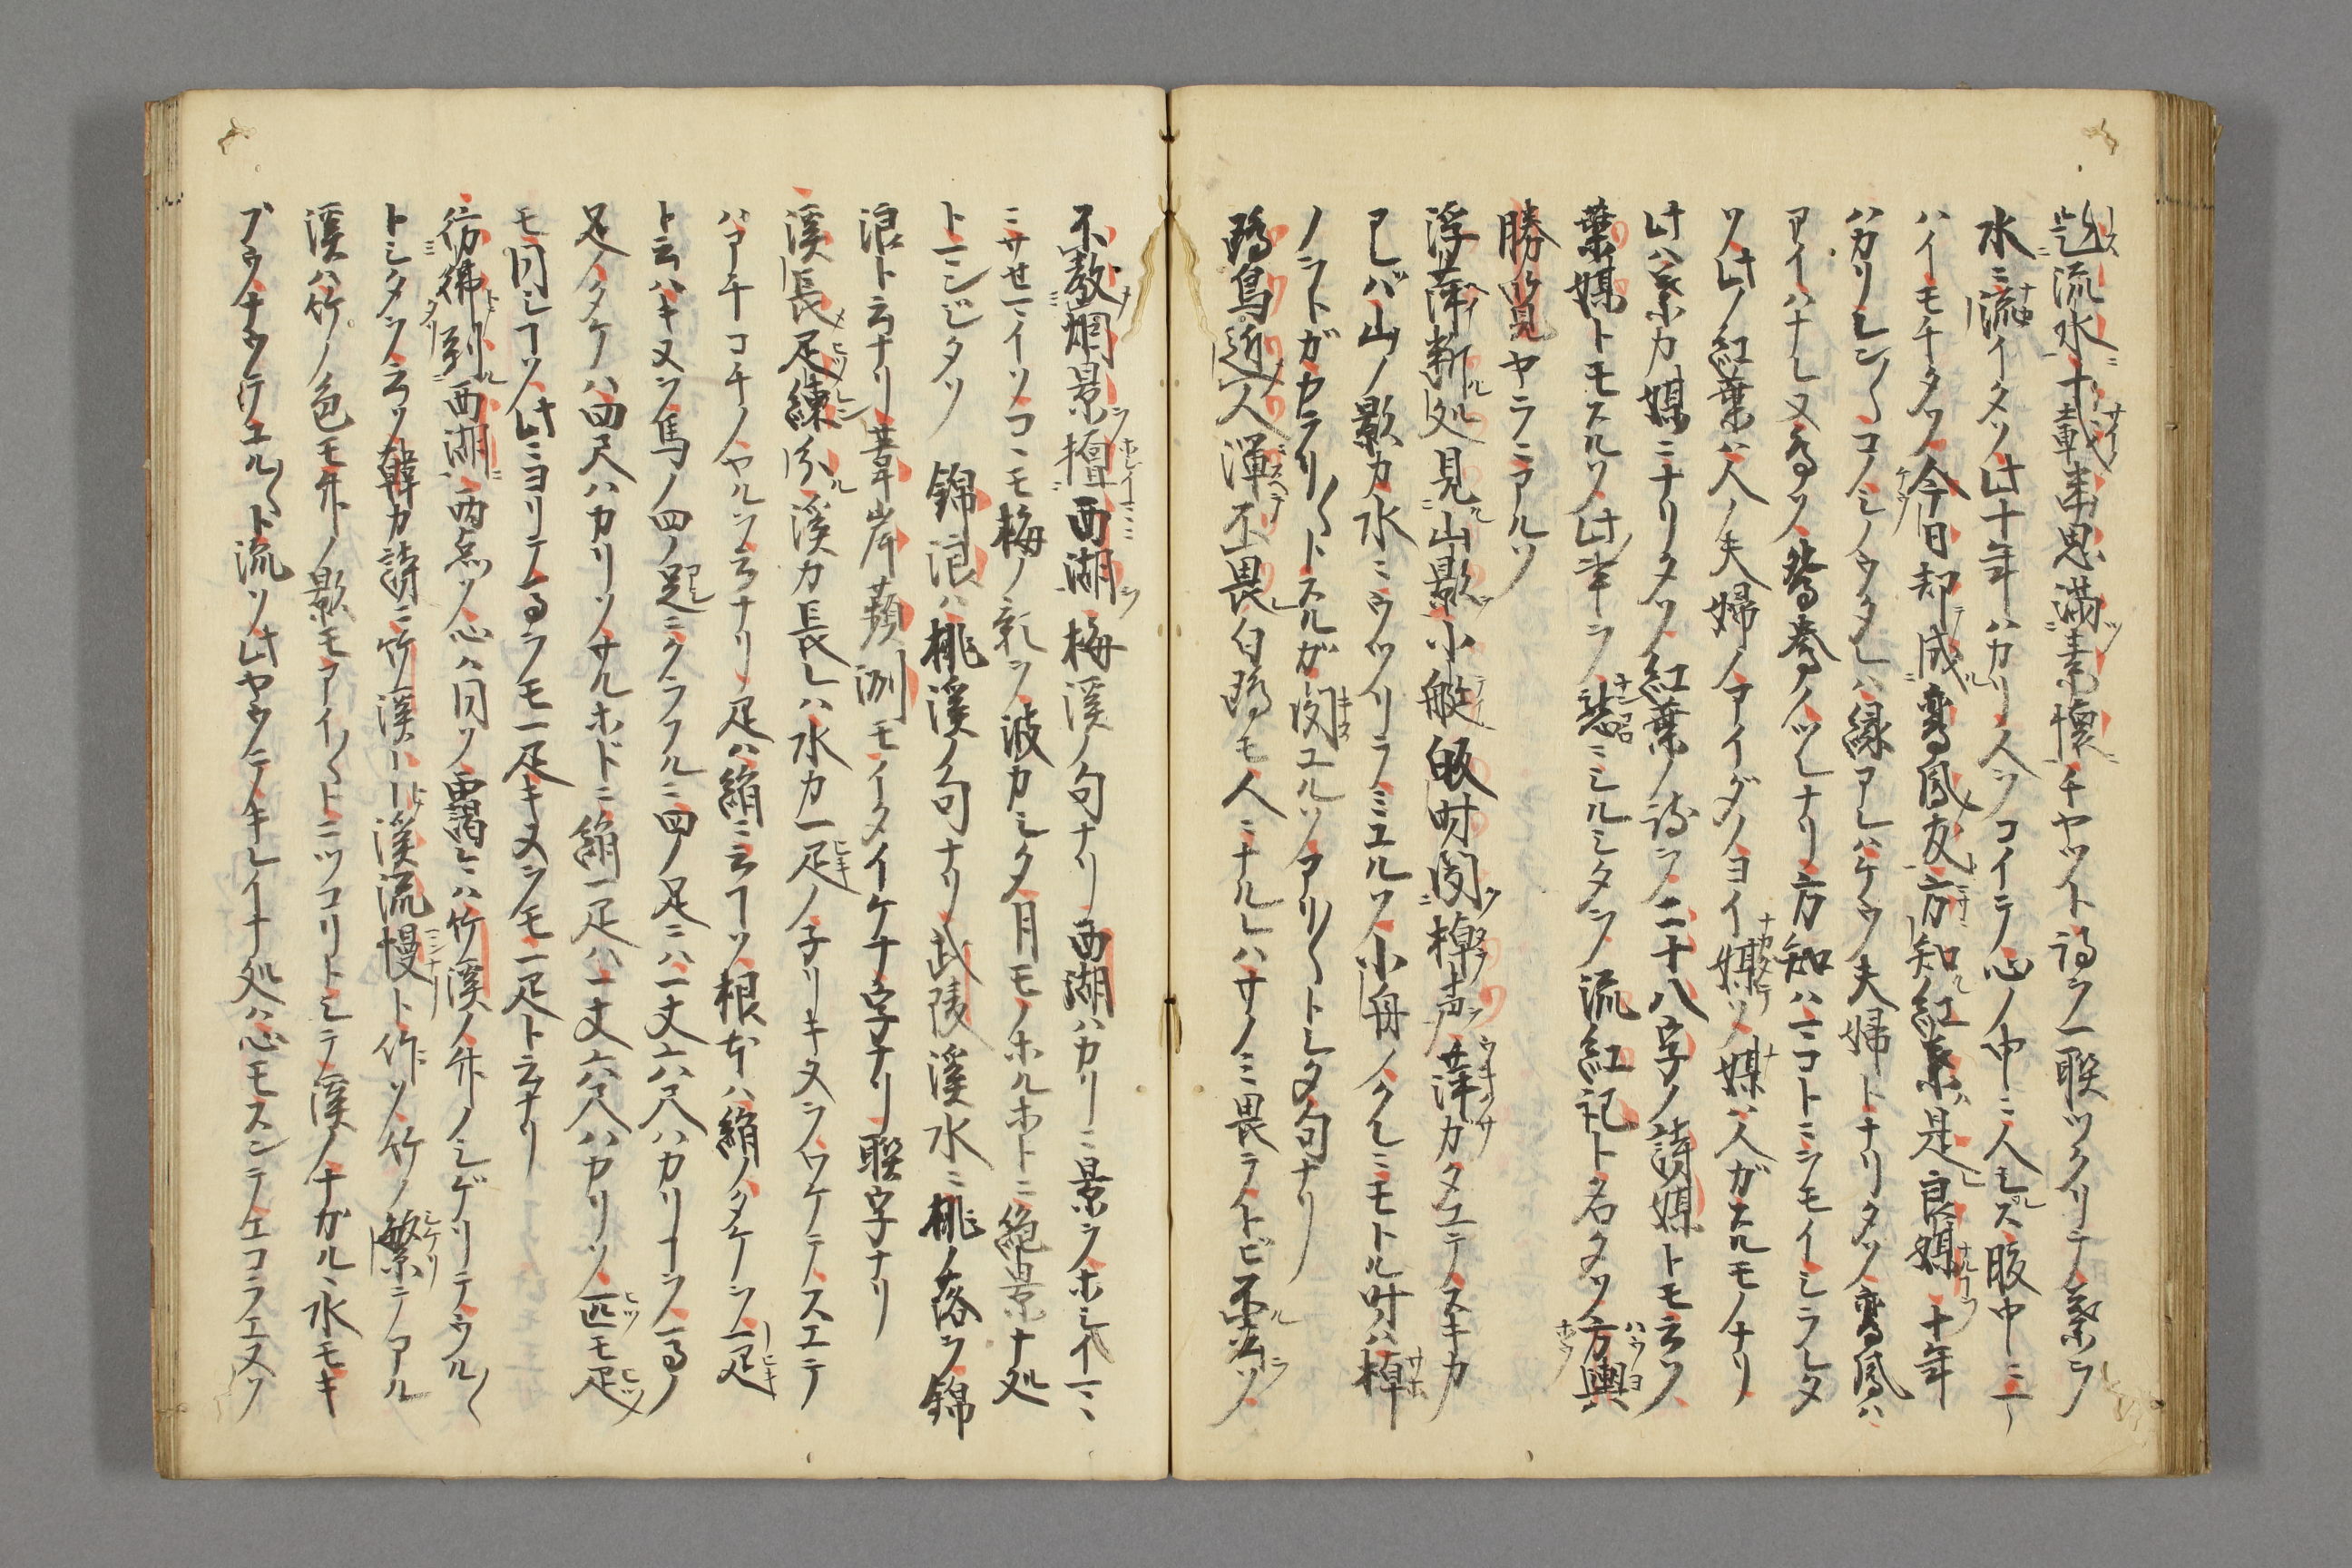 題流水十載幽思満素懐チヤツト詩ヲ一聯ツクリテ葉ヲ
水ニ流イタソ此十年ハカリ人ヲコイテ心ノ中ニ人モス胸中ニ一
ハイモチタソ今日却成鸞鳳友方知紅葉是良媒十年
ハカリシ〱コノミノウタレハ縁アレハケウ夫婦トナリタソ鸞鳳ハ
アイハナレヌ鳥ソ鴛鴦ノツレナリ方知ハマコトニシモイシラレタ
ソ此ノ紅葉ハ人ノ夫婦ノアイダノヨイ媒ソ媒ハ人ガスルモノナリ
此ハ葉カ媒ニナリタソ紅葉ノ詩ヲ二十八字ノ詩媒トモ云ソ
葉媒トモスルソ此事ヲ ミシルシタヲ流紅記ト名タソ方輿
勝覧ヤラニアルソ
浮萍断処見山影小艇皈時聞棹声萍ガタエテスキカ
アレバ山ノ影カ水ニウツリラミユルソ小舟ノクレニモトル時ハ棹
ノヲトガカラリ〱トスルガ聞ユルソアリ〱トシタ句ナリ
鴎鳥近人渾不畏白鴎モ人ニナルレハサノミ畏ラトビ不去ソ
不教烟景擅西湖梅溪ノ句ナリ西湖ハカリニ景ヲホシイマヽ
ニサセマイソコヽモ梅ノ影ヲ波カシタ月モノホルホトニ絶景ナ処
トーシシタソ 錦浪ハ桃溪ノ句ナリ武陵溪水ニ桃ノ落ヲ錦
浪ト云ナリ葦岸蘋洲モイタイケナ字ナリ聯字ナリ
溪長疋練分溪カ長レハ水カ一疋ノ子リキヌヲワケテスエテ
ハアチコチノヤルヲ云ナリ疋ハ絹ニ云フソ根本ハ絹ノタケヲ一疋
ト云ハキヌヲ馬ノ四ノ足ニクラフルニ四ノ足ニハ一丈六尺ハカリーラ馬ノ
足ノタケハ四尺ハカリソサルホドニ絹一疋ハ一丈六尺ハカリソ匹モ疋
モ同シフソ此ニヨリテ馬ヲモ一疋キヌヲモ一疋ト云ナリ
彷彿到西湖両点ソ心ハ同ソ靄々ハ竹溪ノ竹ノシゲリテウル〱
トシタヲ云ソ韓カ詩ニ竹ノ溪ニ溪流慢ト作ソ竹ノ繁テアル
溪ハ竹ノ色モ竹ノ影モアイ〱トニツコリトシテ溪ノナガルヽ水モキ
ブウナウテユル〱ト流ソ此ヤウテキレイナ処ハ心モスンテエコラエヌソ